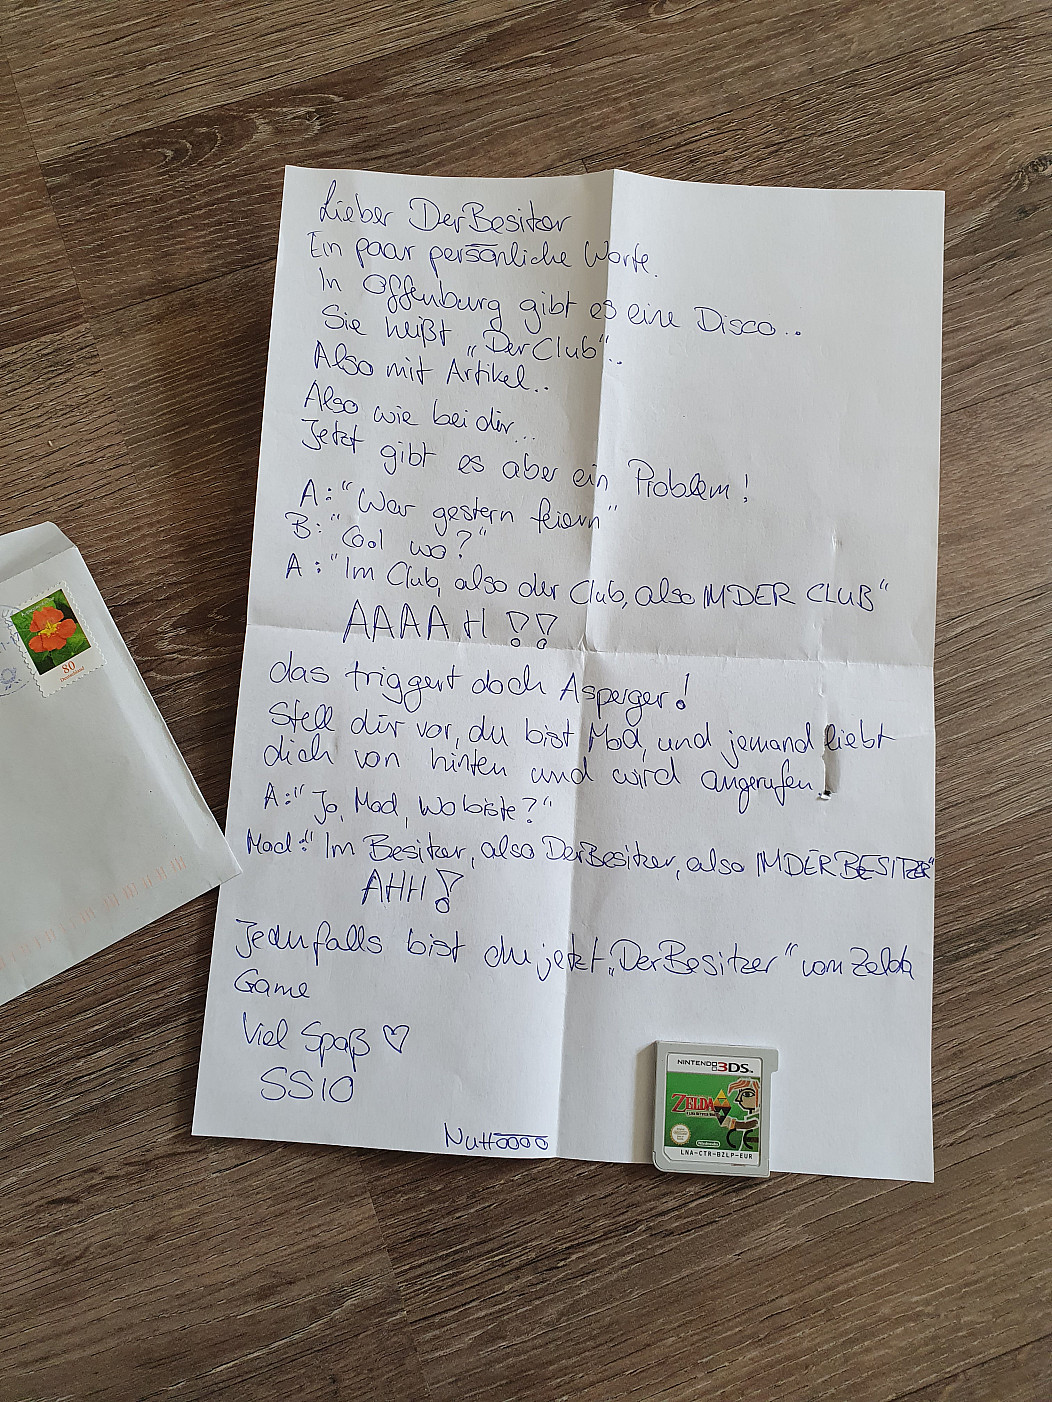 Lieber DerBesitzer
Ein paar persönliche Worte.
In Offenburg gibt es eine Disco..
Sie heißt „DerClub"..
Also mit Artikel..
Also wie bei dir...
Jetzt gibt es aber ein Problem!
A: "War gestern feiern"
B: "Cool wo?"
A: "Im Club, also der Club, also IMDER CLUB"
AAAAH!!
das triggert doch Asperger!
Stell dir vor, du bist Mod, und jemand liebt
dich von hinten und wird angerufen.
A: "Jo, Mod, Wo biste?"
Mod: "Im Besitzer, also DerBesitzer, also IMDERBESITZER"
AHH!
Jedenfalls bist du jetzt „DerBesitzer" vom Zelda
Game
Viel Spaß ♡
SSIO
Nuttoooo
80
Deutschland
NINTENDO 3DS
ZELDA
Nintendo
CE
LNA-CTR-BZLP-EUR